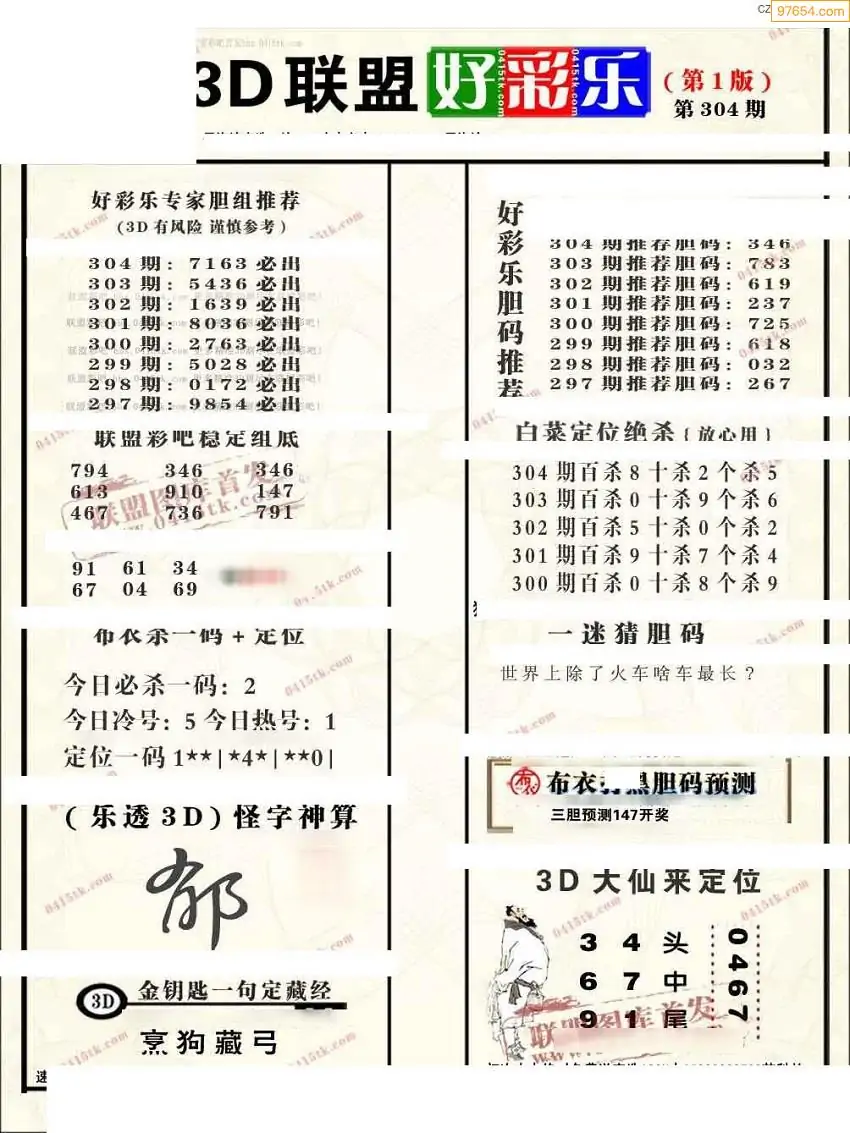 97654.com
CZ
3D联盟 好彩乐 (第1版)
第304期
好彩乐专家胆组推荐
(3D有风险 谨慎参考)
304期: 7163必出
303期: 5436必出
302期: 1639必出
301期: 8036必出
300期: 2763必出
299期: 5028必出
298期: 0172必出
297期: 9854必出
联盟彩吧稳定组底
794 346 346
613 910 147
467 736 791
联盟图库首发
www.0415tk.com
91 61 34
67 04 69
布衣杀一码+定位
今日必杀一码: 2
今日冷号: 5 今日热号: 1
定位一码 1**|*4*|**0|
(乐透3D)怪字神算
郁
3D 金钥匙一句定藏经
烹狗藏弓
好彩乐胆码推荐
304期推荐胆码: 346
303期推荐胆码: 783
302期推荐胆码: 619
301期推荐胆码: 237
300期推荐胆码: 725
299期推荐胆码: 618
298期推荐胆码: 032
297期推荐胆码: 267
白菜定位绝杀{放心用}
304期百杀8十杀2个杀5
303期百杀0十杀9个杀6
302期百杀5十杀0个杀2
301期百杀9十杀7个杀4
300期百杀0十杀8个杀9
一迷猜胆码
世界上除了火车啥车最长?
布衣 胆码预测
三胆预测147开奖
3D大仙来定位
3 4 头
6 7 中
9 1 尾
0467
联盟图库首发